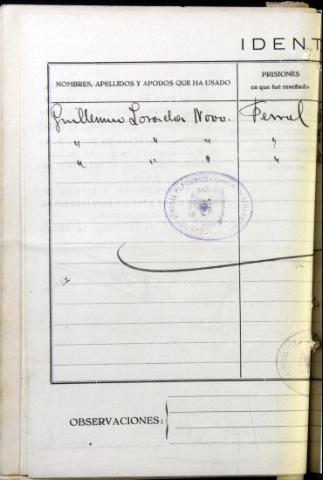 IDENT
NOMBRES, APELLIDOS Y APODOS QUE HA USADO
PRISIONES
en que fué reseñado
Guillermo Losada Novo. Ferrol
" " " "
" " " "
OBSERVACIONES: